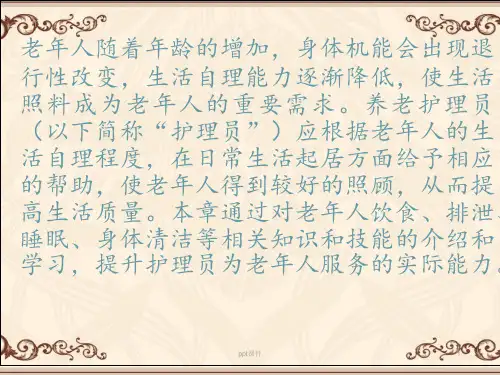 老年人随着年龄的增加，身体机能会出现退
行性改变，生活自理能力逐渐降低，使生活
照料成为老年人的重要需求。养老护理员
（以下简称“护理员”）应根据老年人的生
活自理程度，在日常生活起居方面给予相应
的帮助，使老年人得到较好的照顾，从而提
高生活质量。本章通过对老年人饮食、排泄、
睡眠、身体清洁等相关知识和技能的介绍和
学习，提升护理员为老年人服务的实际能力。